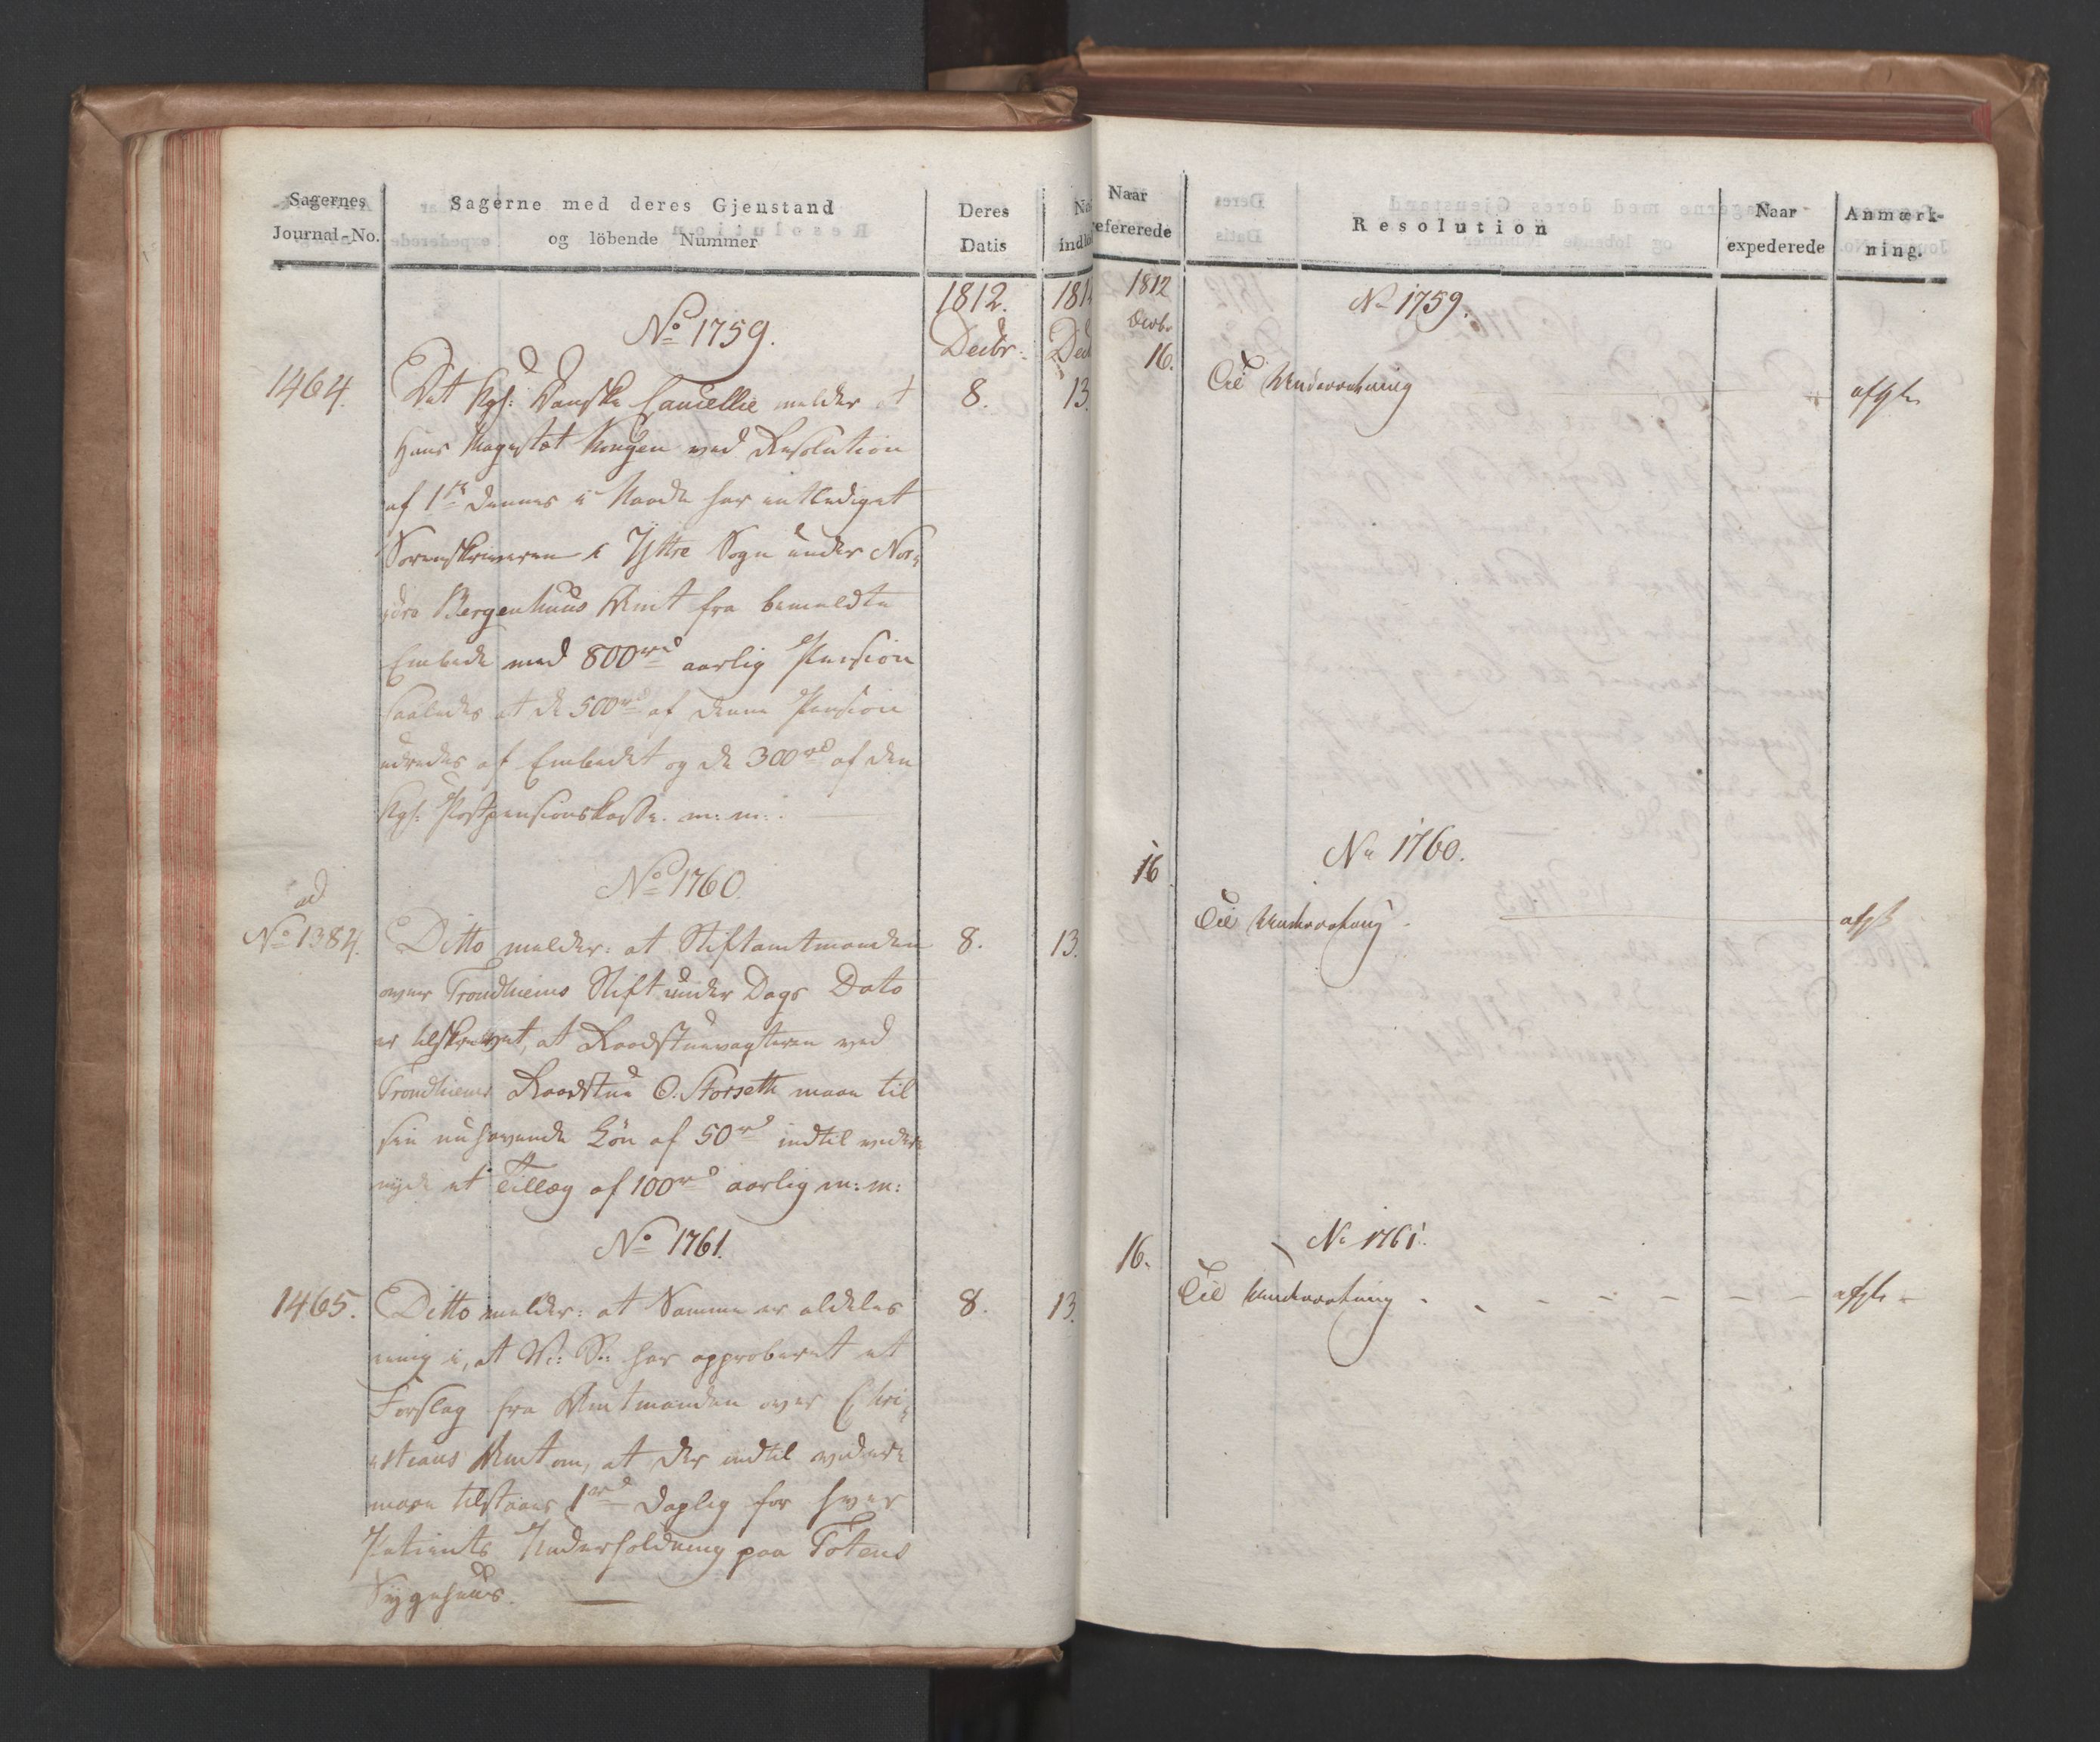 Sagernes
Journal-No.
Sagerne med deres Gjenstand
og löbende Nummer
Deres
Datis
1812.
Decbr:
No 1759.
1464.
Det Kgl: Danske Cancellie melder at
8.
13.
Hans Magestæt Kongen ved Resolution
af 1ste dennes i Naade har entlediget
Sorenskriveren i Yttre Sogn under Nor-
dre Bergenhuus Amt fra bemeldte
Embede med 800rd aarlig Pension
saaledes at de 500rd af denne Pension
udredes af Embedet og de 300rd af den
Kgl: Postpensionskasse. m: m:
No 1760.
ad
No 1384.
Ditto melder: at Stiftamtmanden
8.
13.
over Trondhiems Stift under Dags Dato
er tilskrevet, at Raadstuevagteren ved
Trondhiems Raadstue O. Storseth maae til
sin nuhavende Lön af 50rd indtil videre
nyde et Tillæg af 100rd aarlig m: m:
No 1761.
1465.
Ditto melder: at Samme er aldeles
8.
13.
enig i, at V: S: har approberet et
Forslag fra Amtmanden over Chri-
stians Amt om, at der indtil videre
maae tilstaaes 1rd Daglig for hver
Patients Underholdning paa Totens
Sygehuus.
Naar
refererede
Resolution
Naar
expederede
Anmærk-
ning.
1812
Decbr
16.
No 1759.
Til Underretning
afgl.
16
No 1760.
Til Underretning.
afgl
16.
No 1761.
Til Underretning
afgl.